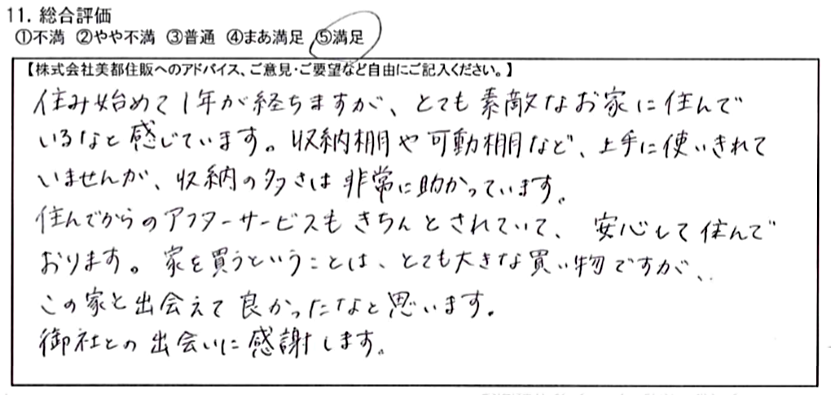 11. 総合評価
①不満 ②やや不満 ③普通 ④まあ満足 ⑤満足
【株式会社美都住販へのアドバイス、ご意見・ご要望など自由にご記入ください。】
住み始めて1年が経ちますが、とても素敵なお家に住んで
いるなと感じています。収納棚や可動棚など、上手に使いきれて
いませんが、収納の多さは非常に助かっています。
住んでからのアフターサービスもきちんとされていて、安心して住んで
おります。家を買うということは、とても大きな買い物ですが、
この家と出会えて良かったなと思います。
御社との出会いに感謝します。